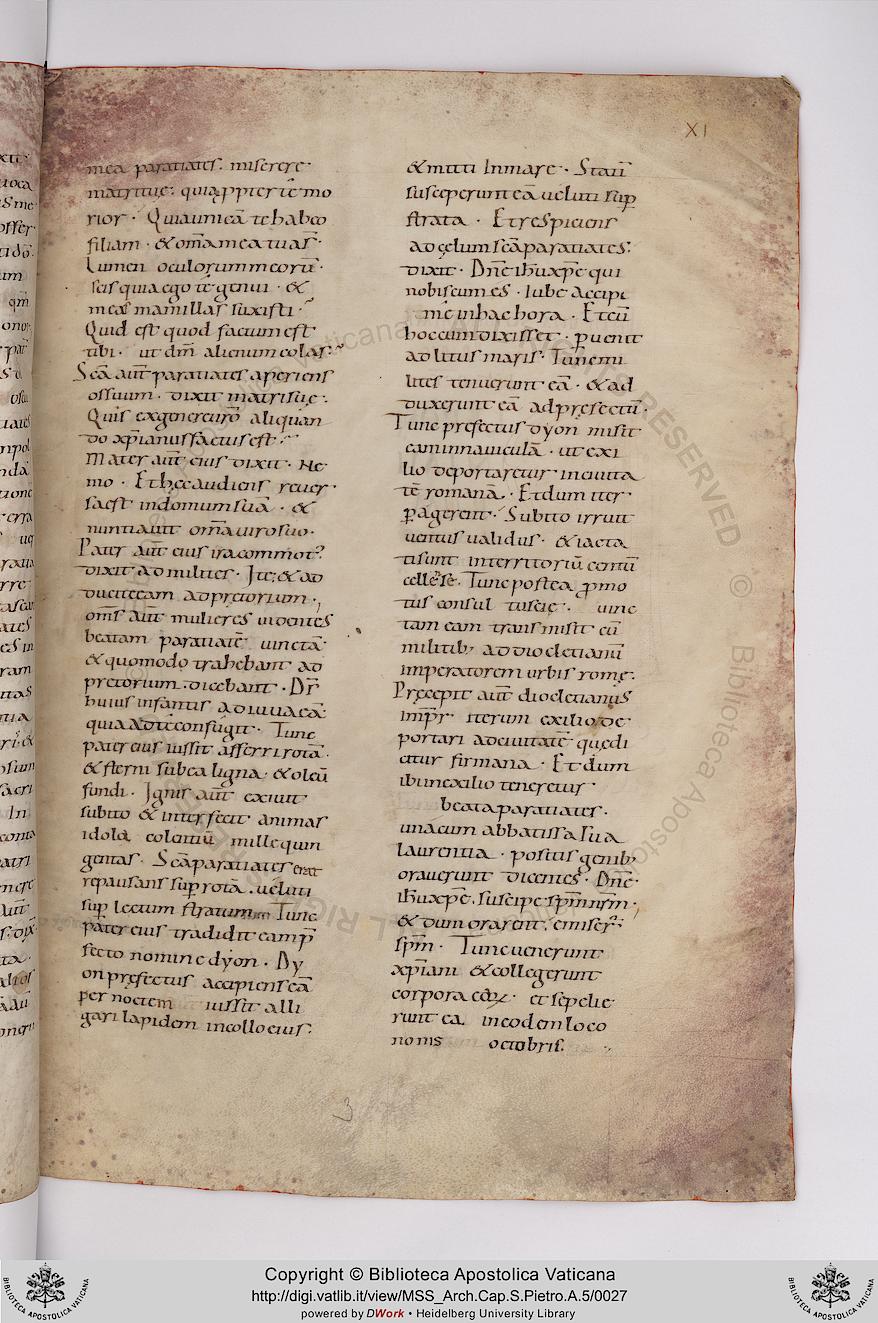 XI
mea paratiates. miserere
matri tuę. quia ppter te mo
rior. Quia unicā te habeo
filiam. & om̄a mea tua s̄.
Lumen oculorum meorū.
scis quia ego te genui. &
meas mamillas suxisti.
Quid est quod factum est
tibi. ut dm̄ alienum colas.
Scā aūt paratiates aperiens
os suum. dixit matri suę.
Quis ex genere ur̄o aliquan
do xp̄ianus factus est.
Mater aūt eius dixit. Ne
mo. Et hęc audiens reuer
sa est in domum suā. &
nuntiauit om̄a uiro suo.
Pater aūt eius ira commot'
dixit ad milites. Ite & ad
ducite eam ad pretorium.
om̄s aūt mulieres uidentes
beatam paratiatē uinctā.
& quomodo trahebant ad
pretorium. dicebant. Ds̄
huius infantis adiuua eā.
quia ad te confugit. Tunc
pater eius iussit afferri rotā.
& sterni sub ea ligna. & oleū
fundi. Ignis aūt exiuit
subito & interfecit animas
idola colentiū mille quin
gentas. Scā paratiates erat
repausans sup rotā. ueluti
sup lectum stratum. Tunc
pater eius tradidit eam p̄
fecto nomine dyon. Dy
on pręfectus accipiens eā
per noctem iussit alli
gari lapidem in collo eius.
& mitti In mare. Stati
susceperunt eā ueluti sup
strata. Et respiciens
ad cęlum scā paratiates.
dixit. Dn̄e ihū xp̄e qui
nobiscum es. Iube accipi
me in hac hora. Et cū
hoc cum dixisset. puenit
ad litus maris. Tunc mi
lites tenuerunt eā. & ad
duxerunt eā ad pręfectū.
Tunc pręfectus dyon misit
eam in nauiculā. ut exi
lio deportaretur in ciuita
tē romanā. Et dum iter
pagerent. Subito irruit
uentus ualidus. & iacta
ti sunt in territoriū centū
cellense. Tunc postea pmo
tus consul tuscię. uinc
tam eam transmisit cū
militib; ad diocletianū
imperatorem urbis romę.
Pręcepit aūt diocletianus
imp̄r iterum exilio de
portari ad ciuitatē quę di
citur firmana. Et dum
ibi in exilio teneretur
beata paratiates.
una cum abbatissa sua
laurentia. positis genib;
orauerunt dicentes. Dn̄e
ihū xp̄e. suscipe spm̄ nr̄m.
& dum orarent. emiser̄
spm̄. Tunc uenerunt
xp̄iani & collegerunt
corpora eoꝝ. et sepelie
runt ea in eodem loco
nonis octobris.
3
Copyright © Biblioteca Apostolica Vaticana
http://digi.vatlib.it/view/MSS_Arch.Cap.S.Pietro.A.5/0027
powered by DWork • Heidelberg University Library